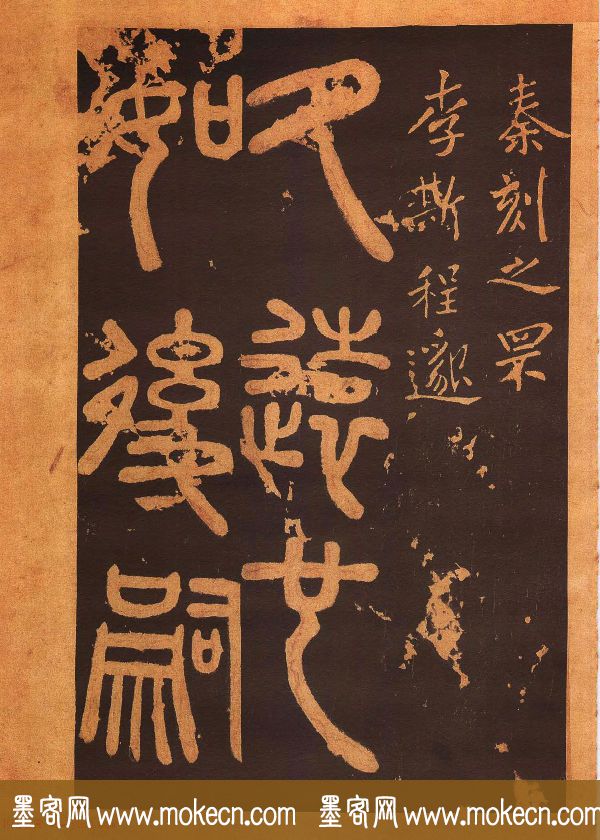 秦刻之罘
李斯程邈
久遠也
如後嗣
墨客网 www.mokecn.com 墨客网 www.mokecn.com